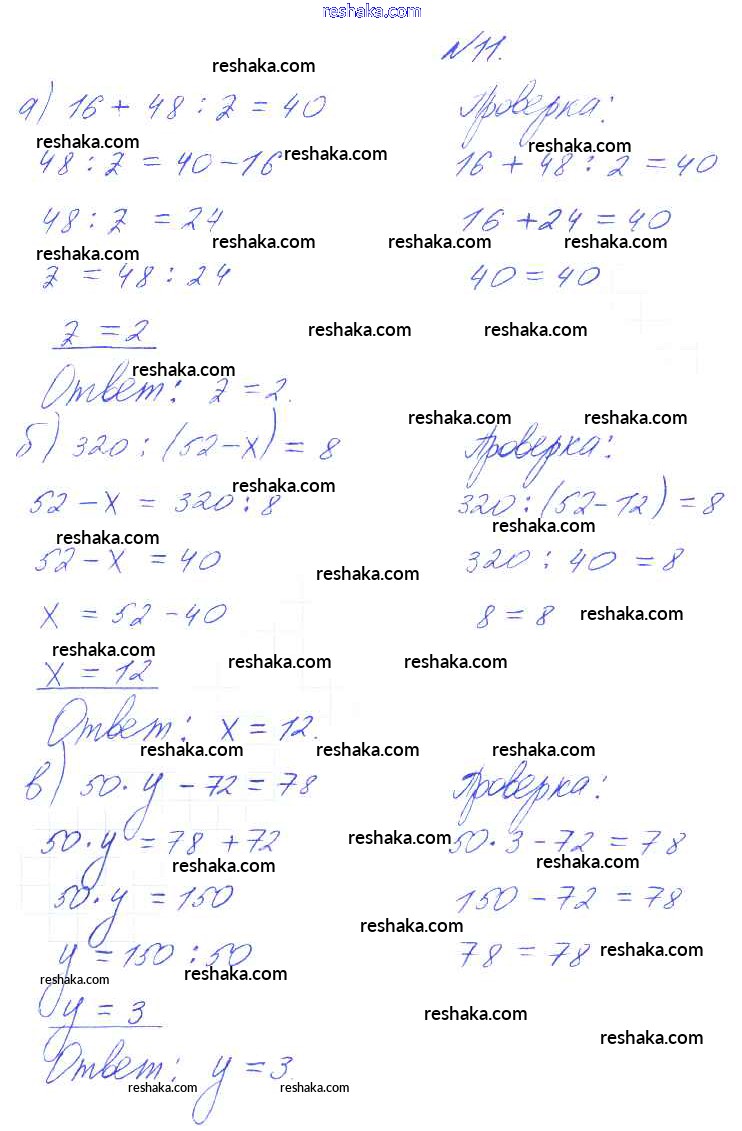 reshaka.com
№11.
reshaka.com
а) 16 + 48 : z = 40 Проверка:
reshaka.com reshaka.com reshaka.com
48 : z = 40 - 16 16 + 48 : 2 = 40
48 : z = 24 16 + 24 = 40
reshaka.com reshaka.com reshaka.com reshaka.com
z = 48 : 24 40 = 40
z = 2 reshaka.com reshaka.com
reshaka.com
Ответ: z = 2.
reshaka.com reshaka.com
б) 320 : (52 - x) = 8 Проверка:
reshaka.com
52 - x = 320 : 8 320 : (52 - 12) = 8
reshaka.com reshaka.com
52 - x = 40 320 : 40 = 8
reshaka.com
x = 52 - 40 8 = 8 reshaka.com
reshaka.com reshaka.com reshaka.com
x = 12
Ответ: x = 12.
reshaka.com reshaka.com reshaka.com
в) 50 · y - 72 = 78 Проверка:
50 · y = 78 + 72 reshaka.com 50 · 3 - 72 = 78
reshaka.com reshaka.com
50 · y = 150 150 - 72 = 78
reshaka.com
y = 150 : 50 78 = 78 reshaka.com
reshaka.com reshaka.com
y = 3 reshaka.com
reshaka.com
Ответ: y = 3.
reshaka.com reshaka.com